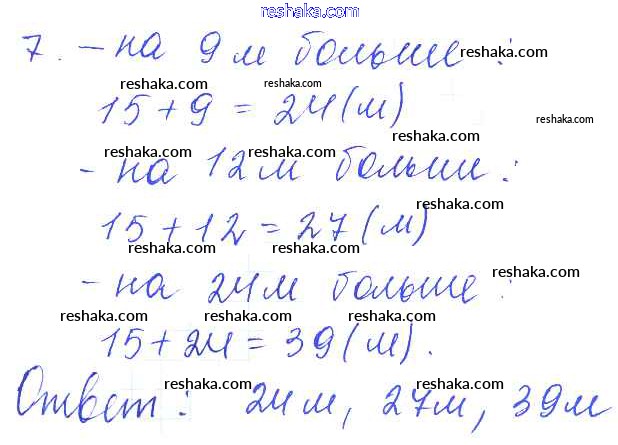 reshaka.com
7. - на 9 м больше :
reshaka.com
reshaka.com reshaka.com
15 + 9 = 24 (м)
reshaka.com
reshaka.com
reshaka.com reshaka.com
- на 12 м больше :
reshaka.com
15 + 12 = 27 (м)
reshaka.com reshaka.com
reshaka.com
- на 24 м больше :
reshaka.com reshaka.com reshaka.com
15 + 24 = 39 (м).
reshaka.com reshaka.com reshaka.com
Ответ : 24 м, 27 м, 39 м